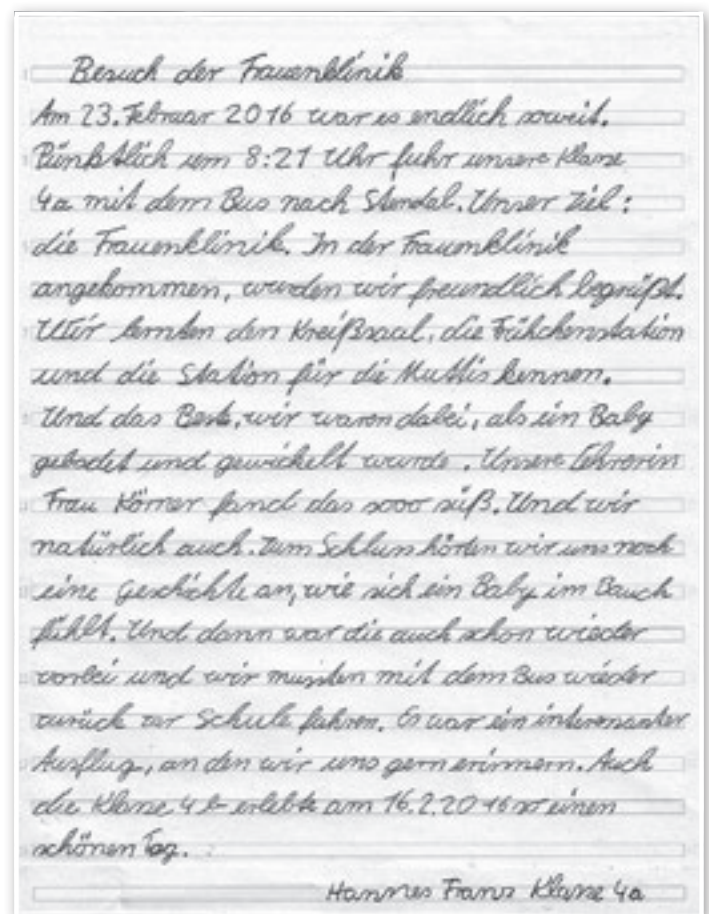 Besuch der Frauenklinik
Am 23. Februar 2016 war es endlich soweit.
Pünktlich um 8:21 Uhr fuhr unsere Klasse
4a mit dem Bus nach Stendal. Unser Ziel:
die Frauenklinik. In der Frauenklinik
angekommen, wurden wir freundlich begrüßt.
Wir lernten den Kreißsaal, die Frühchenstation
und die Station für die Muttis kennen.
Und das Beste, wir waren dabei, als ein Baby
gebadet und gewickelt wurde. Unsere Lehrerin
Frau Körner fand das sooo süß. Und wir
natürlich auch. Zum Schluss hörten wir uns noch
eine Geschichte an, wie sich ein Baby im Bauch
fühlt. Und dann war die auch schon wieder
vorbei und wir mussten mit dem Bus wieder
zurück zur Schule fahren. Es war ein interessanter
Ausflug, an den wir uns gern erinnern. Auch
die Klasse 4b erlebte am 16.2.2016 so einen
schönen Tag.
Hannes Franz Klasse 4a